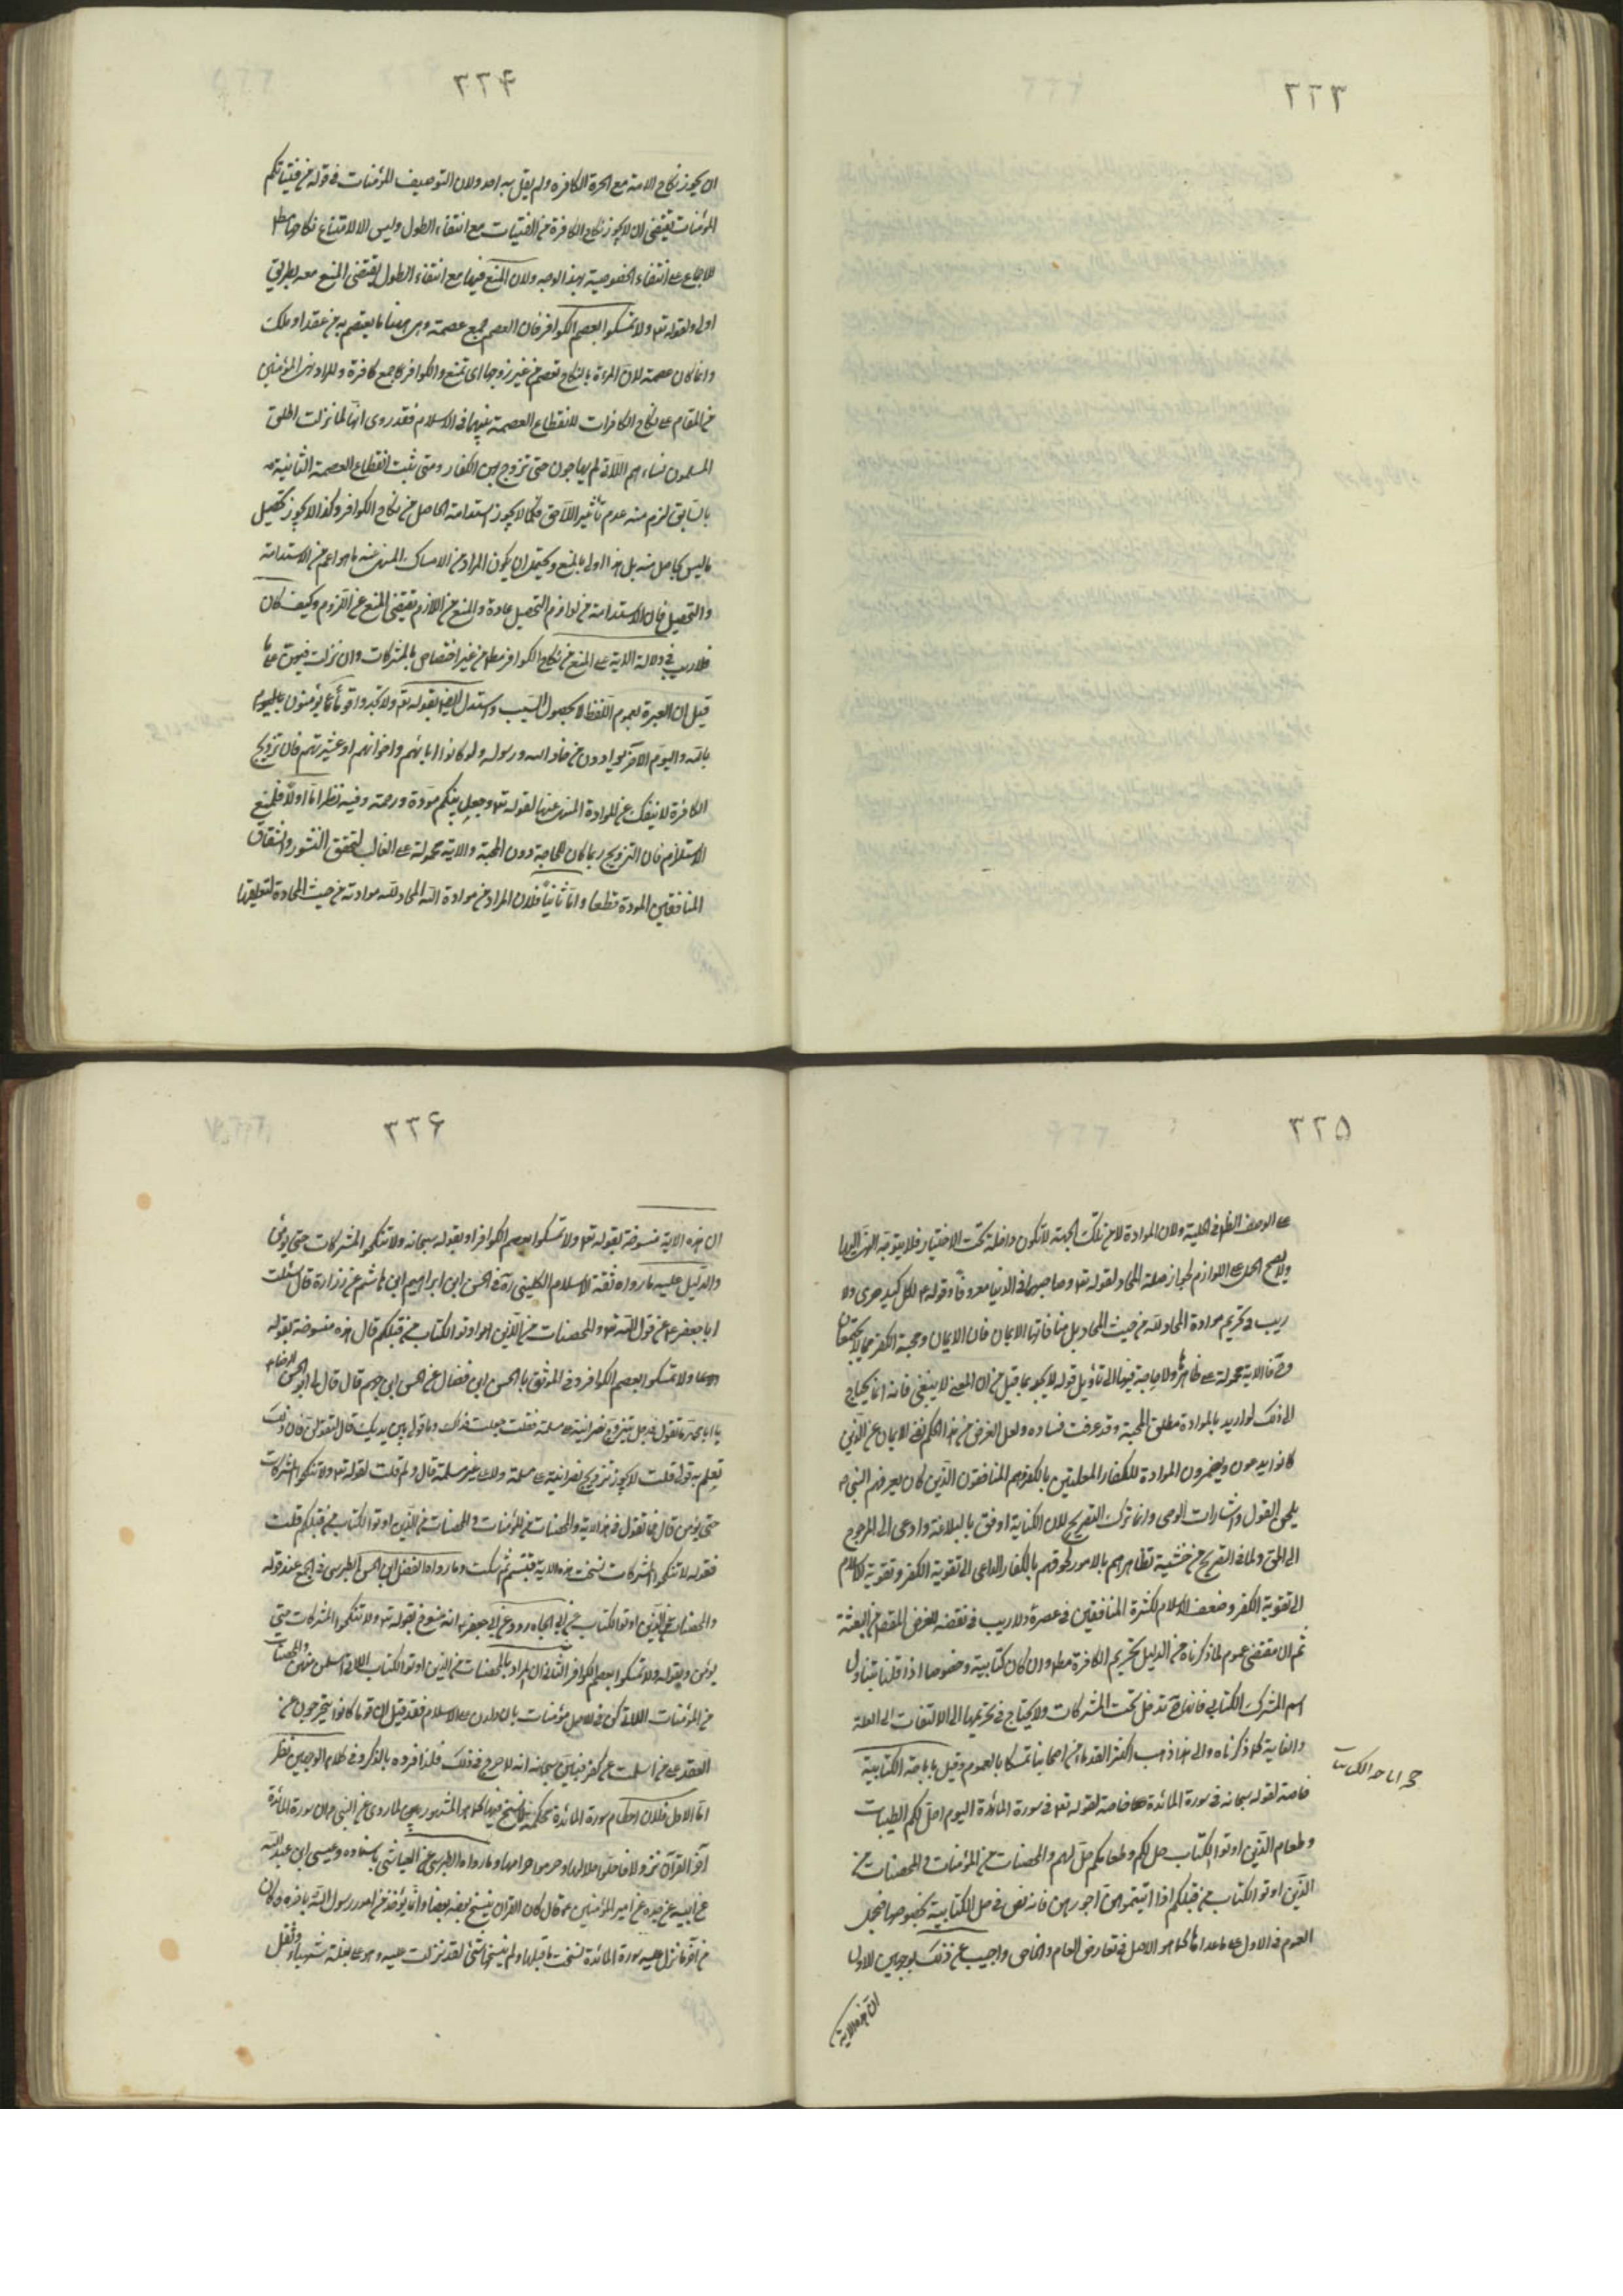 ٣٣٣
٣٣٤
ان يجوز نكاح الامة مع الحرة الكافرة ولم يقل به احد ولان التوصيف للمؤمنات في قوله من فتياتكم
المؤمنات يقتضي ان لا يجوز نكاح الكافرة من الفتيات مع انتفاء الطول وليس الا لامتناع نكاحها مطلقا
للاجماع على انتفاء الخصوصية بهذا الوجه ولان المنع فيها مع انتفاء الطول يقتضي المنع معه بطريق
اولى ولقوله تعالى ولا تمسكوا بعصم الكوافر فان العصم جمع عصمة وهي هنا ما يعتصم به من عقد او ملك
وانما كان عصمة لان المرءة بالنكاح تعصم من غير زوجها اى تمنع والكوافر كما جمع كافرة والمراد نهى المؤمنين
من المقام على نكاح الكافرات لانقطاع العصمة بينهما في الاسلام فقد روى انها لما نزلت اطلق
المسلمون نساءهم اللاتي لم يهاجرن حتى تزوج بهن الكفار ومتى ثبت انقطاع العصمة الثانية
بالسابق لزم منه عدم تأثير اللاحق فكما لا يجوز استدامة الحاصل من نكاح الكوافر وكذا لا يجوز تحصيل
ما ليس بحاصل منه بل هذا اولى بالمنع ويحتمل ان يكون المراد من الامساك المنهي عنه ما هو اعم من الاستدامة
والتحصيل فان الاستدامة من لوازم التحصيل عادة والمنع من اللازم يقتضي المنع عن الملزوم وكيف كان
فلا ريب في دلالة الاية على المنع من نكاح الكوافر مطلقا من غير اختصاص بالمشركات وان نزلت فيهن على ما
قيل ان العبرة بعموم اللفظ لا بخصوص السبب واستدل ايضا بقوله تعالى ولا تجد قوما يؤمنون
بالله واليوم الآخر يوادون من حاد الله ورسوله ولو كانوا ابائهم واخوانهم او عشيرتهم فان تزويج
الكافرة لا ينفك عن الموادة المنهي عنها لقوله تعالى وجعل بينكم مودة ورحمة وفيه نظر اما اولا فلمنع
الاستلزام فان التزويج ربما كان للحاجة دون المحبة والاية محمولة على الغالب لتحقق النشوز والشقاق
المنافيين المودة قطعا واما ثانيا فلان المراد من موادة الله المحاد لله موادته من حيث المحادة لتعليقها
٣٣٥
على الوصف الظاهر في العلية ولان الموادة لا من تلك الجهة لا تكون داخلة تحت الاختيار فلا يتوجه النهي اليها
ولا يصح الحمل على اللوازم لجواز صلة المحاد لقوله تعالى وصاحبهما في الدنيا معروفا وقوله لكل كبد حرى ولا
ريب في تحريم موادة المحاد لله من حيث المحاد بل منافاتها الايمان فان الايمان ومحبة الكفر مما لا يجتمعان
فالاية محمولة على ظاهرها ولا حاجة فيها الى تأويل قوله لا تجد بما قيل من ان المعنى لا ينبغي فانه انما يحتاج
الى ذلك لو اريد بالموادة مطلق المحبة وقد عرفت فساده ولعل الغرض من هذا الحكم نفي الايمان عن الذين
كانوا يدعون ويضمرون الموادة للكفار المعلنين بالكفر وهم المنافقون الذين كان يعرفهم النبي ص
بلحن القول واشارات الوحي وانما ترك التصريح لان الكناية اوفق بالبلاغة وادعى الى الرجوع
الى الحق ولما في التصريح من خشية تظاهرهم بالامور لحوقهم بالكفار الداعي الى تقوية الكفر
الى تقوية الكفر وضعف الاسلام لكثرة المنافقين في عصره ولا ريب في نقضه للغرض المقصود من البعثة
ثم ان مقتضى عموم ما ذكرناه من الدليل تحريم الكافرة مطلقا وان كان كتابية وخصوصا اذا قلنا بتناول
اسم المشرك الكتابي فانها ح تدخل تحت المشركات ولا يحتاج في تحريمها الى الالتفات الى العلة
والغاية كما ذكرناه والى هذا ذهب اكثر القدماء من اصحابنا تمسكا بالعموم وقيل باباحة الكتابية
خاصة لقوله سبحانه في سورة المائدة خاصة لقوله تعالى في سورة المائدة اليوم احل لكم الطيبات
وطعام الذين اوتوا الكتاب حل لكم وطعامكم حل لهم والمحصنات من المؤمنات والمحصنات من
الذين اوتوا الكتاب من قبلكم اذا اتيتموهن اجورهن فانه نص في حل الكتابية بخصوصها فيحمل
العموم في الاول على ما عداها كما هو الاصل في تعارض العام والخاص واجيب عن ذلك بوجهين الاول
ان هذه الاية
٣٣٦
ان هذه الاية منسوخة بقوله تعالى ولا تمسكوا بعصم الكوافر او بقوله سبحانه ولا تنكحوا المشركات حتى يؤمن
والدليل عليه ما رواه ثقة الاسلام الكليني ره في الحسن ابن ابراهيم ابن هاشم عن زرارة قال سئلت
ابا جعفر ع عن قول الله تعالى والمحصنات من الذين اوتوا الكتاب من قبلكم قال هذه منسوخة بقوله
ولا تمسكوا بعصم الكوافر وفي الموثق بالحسن ابن فضال عن الحسن ابن جهم قال قال لي ابو الحسن الرضا ع
يا ابا محمد ما تقول في رجل يتزوج نصرانية على مسلمة فقلت جعلت فداك وما قولي بين يديك قال لتقولن فان ذلك
تعلم به قولي قلت لا يجوز تزويج نصرانية على مسلمة ولا على غير مسلمة قال ولم قلت لقوله تعالى ولا تنكحوا المشركات
حتى يؤمن قال فما تقول في هذه الاية والمحصنات من المؤمنات والمحصنات من الذين اوتوا الكتاب من قبلكم قلت
فقوله لا تنكحوا المشركات نسخت هذه الاية فتبسم ثم سكت وما رواه ابو الفضل ابن الحسن الطبرسي في المجمع عند قوله
والمحصنات من الذين اوتوا الكتاب عن ابي الجارود عن ابي جعفر ع انه منسوخ بقوله تعالى ولا تنكحوا المشركات حتى
يؤمن وبقوله ولا تمسكوا بعصم الكوافر الثاني ان المراد بالمحصنات من الذين اوتوا الكتاب اللاتي اسلمن منهن والمحصنات
من المؤمنات اللاتي كن في الاصل مؤمنات بان ولدن على الاسلام فقد قيل ان قوما كانوا يتحرجون من
العقد على من اسلمت عن كفر فبين سبحانه انه لا حرج في ذلك فلذا افرده بالذكر وفي كلا الوجهين نظر
اما الاول فلان احكام سورة المائدة محكمة لا نسخ فيها كما هو المشهور بين لما روى عن النبي ص ان سورة المائدة
آخر القرآن نزولا فاحلوا حلالها وحرموا حرامها وما رواه الطبرسي عن العياشي باسناده وعيسى ابن عبد الله
عن ابيه عن جده عن امير المؤمنين ع قال كان القران ينسخ بعضه بعضا وانما يؤخذ من امر رسول الله باخره وكان
من آخر ما نزل عليه سورة المائدة نسخت ما قبلها ولم ينسخها شئ لقد نزلت عليه وهو على بغلة شهباء وثقل